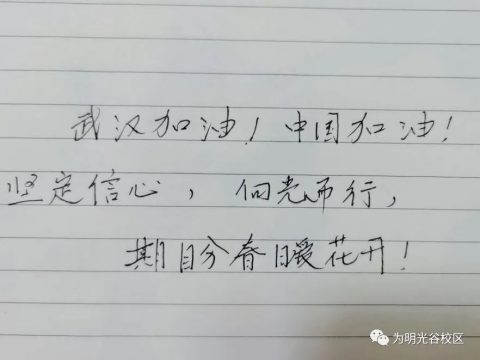 武汉加油！中国加油！
坚定信心，向光而行，
期盼春暖花开！
为明光谷校区